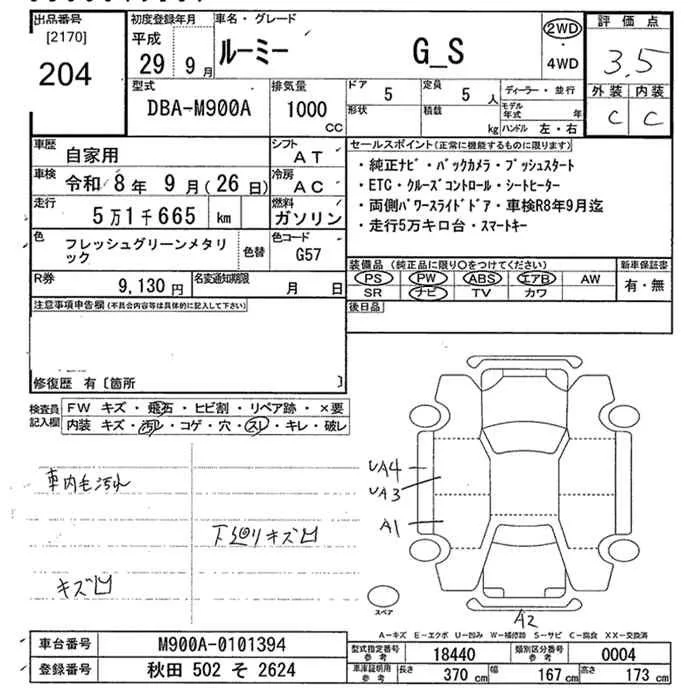 出品番号 初度登録年月 車名・グレード 評価点
[2170] 平成 ルーミー G_S 2WD・4WD 3.5
204 29 9月
型式 排気量 ドア 定員 ディーラー・並行 外装 内装
DBA-M900A 1000 CC 5 5人 C C
形状 積載 kg モデル年式 年
ハンドル 左・右
車歴 自家用 シフト AT セールスポイント(正常に機能するものに限ります)
車検 令和 8年 9月(26日) 冷房 AC ・純正ナビ・バックカメラ・プッシュスタート
走行 5万1千665 km 燃料 ガソリン ・ETC・クルーズコントロール・シートヒーター
・両側パワースライドドア・車検R8年9月迄
色 フレッシュグリーンメタリック 色替 色コード G57 ・走行5万キロ台・スマートキー
装備品(純正品に限り○をつけてください) 新車保証書
R券 9,130円 名変通知期限 月 日 PS PW ABS エアB AW 有・無
SR ナビ TV カワ
注意事項申告欄(不具合内容等は具体的に記入して下さい) 後日品
修復歴 有〔箇所 〕
検査員記入欄 FW キズ・飛石・ヒビ割・リペア跡・×要
内装 キズ・汚れ・コゲ・穴・スレ・キレ・破レ
車内毛汚れ
下廻りキズ凹
キズ凹
UA4
UA3
A1
スペア
A2
A-キズ E-エクボ U-凹み W-補修跡 S-サビ C-腐食 XX-交換済
車台番号 M900A-0101394 型式指定番号 参考 18440 類別区分番号 参考 0004
登録番号 秋田 502 そ 2624 車庫証明用 参考 長さ 370 cm 幅 167 cm 高さ 173 cm